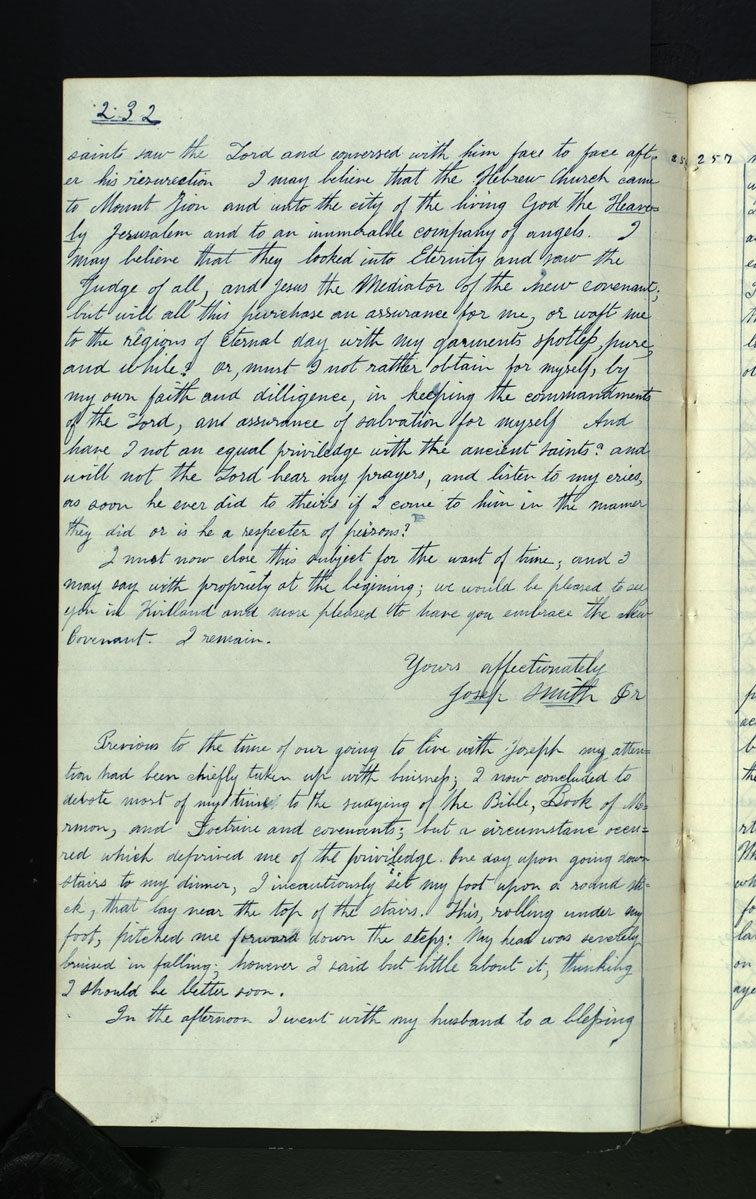 232
saints saw the Lord and conversed with him face to face aft-
er his resurection I may believe that the Hebrew Church came
to Mount Zion and unto the city of the living God the Heave=
ly Jerusalem and to an inumerable company of angels. I
may believe that they looked into Eternity and saw the
Judge of all, and Jesus the Mediator of the New covenant;
but will all this purchase an assurance for me, or waft me
to the regions of Eternal day with my garments spotless, pure,
and while? or, must I not rather obtain for myself, by
my own faith and dilligence, in keeping the commandments
of the Lord, and assurance of salvation for myself And
have I not an equal priviledge with the ancient saints? and
will not the Lord hear my prayers, and listen to my cries,
as soon he ever did to their's if I come to him in the manner
they did or is he a respecter of persons?
I must now close this subject for the want of time; and I
may say with propriety at the begining; we would be pleased to see
you in Kirtland and more pleased to have you embrace the New
Covenant. I remain.
Yours affectionately
Josep Smith Jr
Previous to the time of our going to live with Joseph my atten=
tion had been chiefly taken up with buisness; I now concluded to
devote most of my time to the studying of the Bible, Book of Mo=
rmon, and Doctrine and covenants; but a circumstanc occu=
red which deprived me of the priviledge. One day upon going down
stairs to my dinner, I incautiously set my foot upon a round sti=
ck, that lay near the top of the stairs. This, rolling under my
foot, pitched me forward down the steps: My head was severely
bruised in falling; however I said but little about it, thinking
I should be better soon.
In the afternoon I went with my husband to a blessing
257